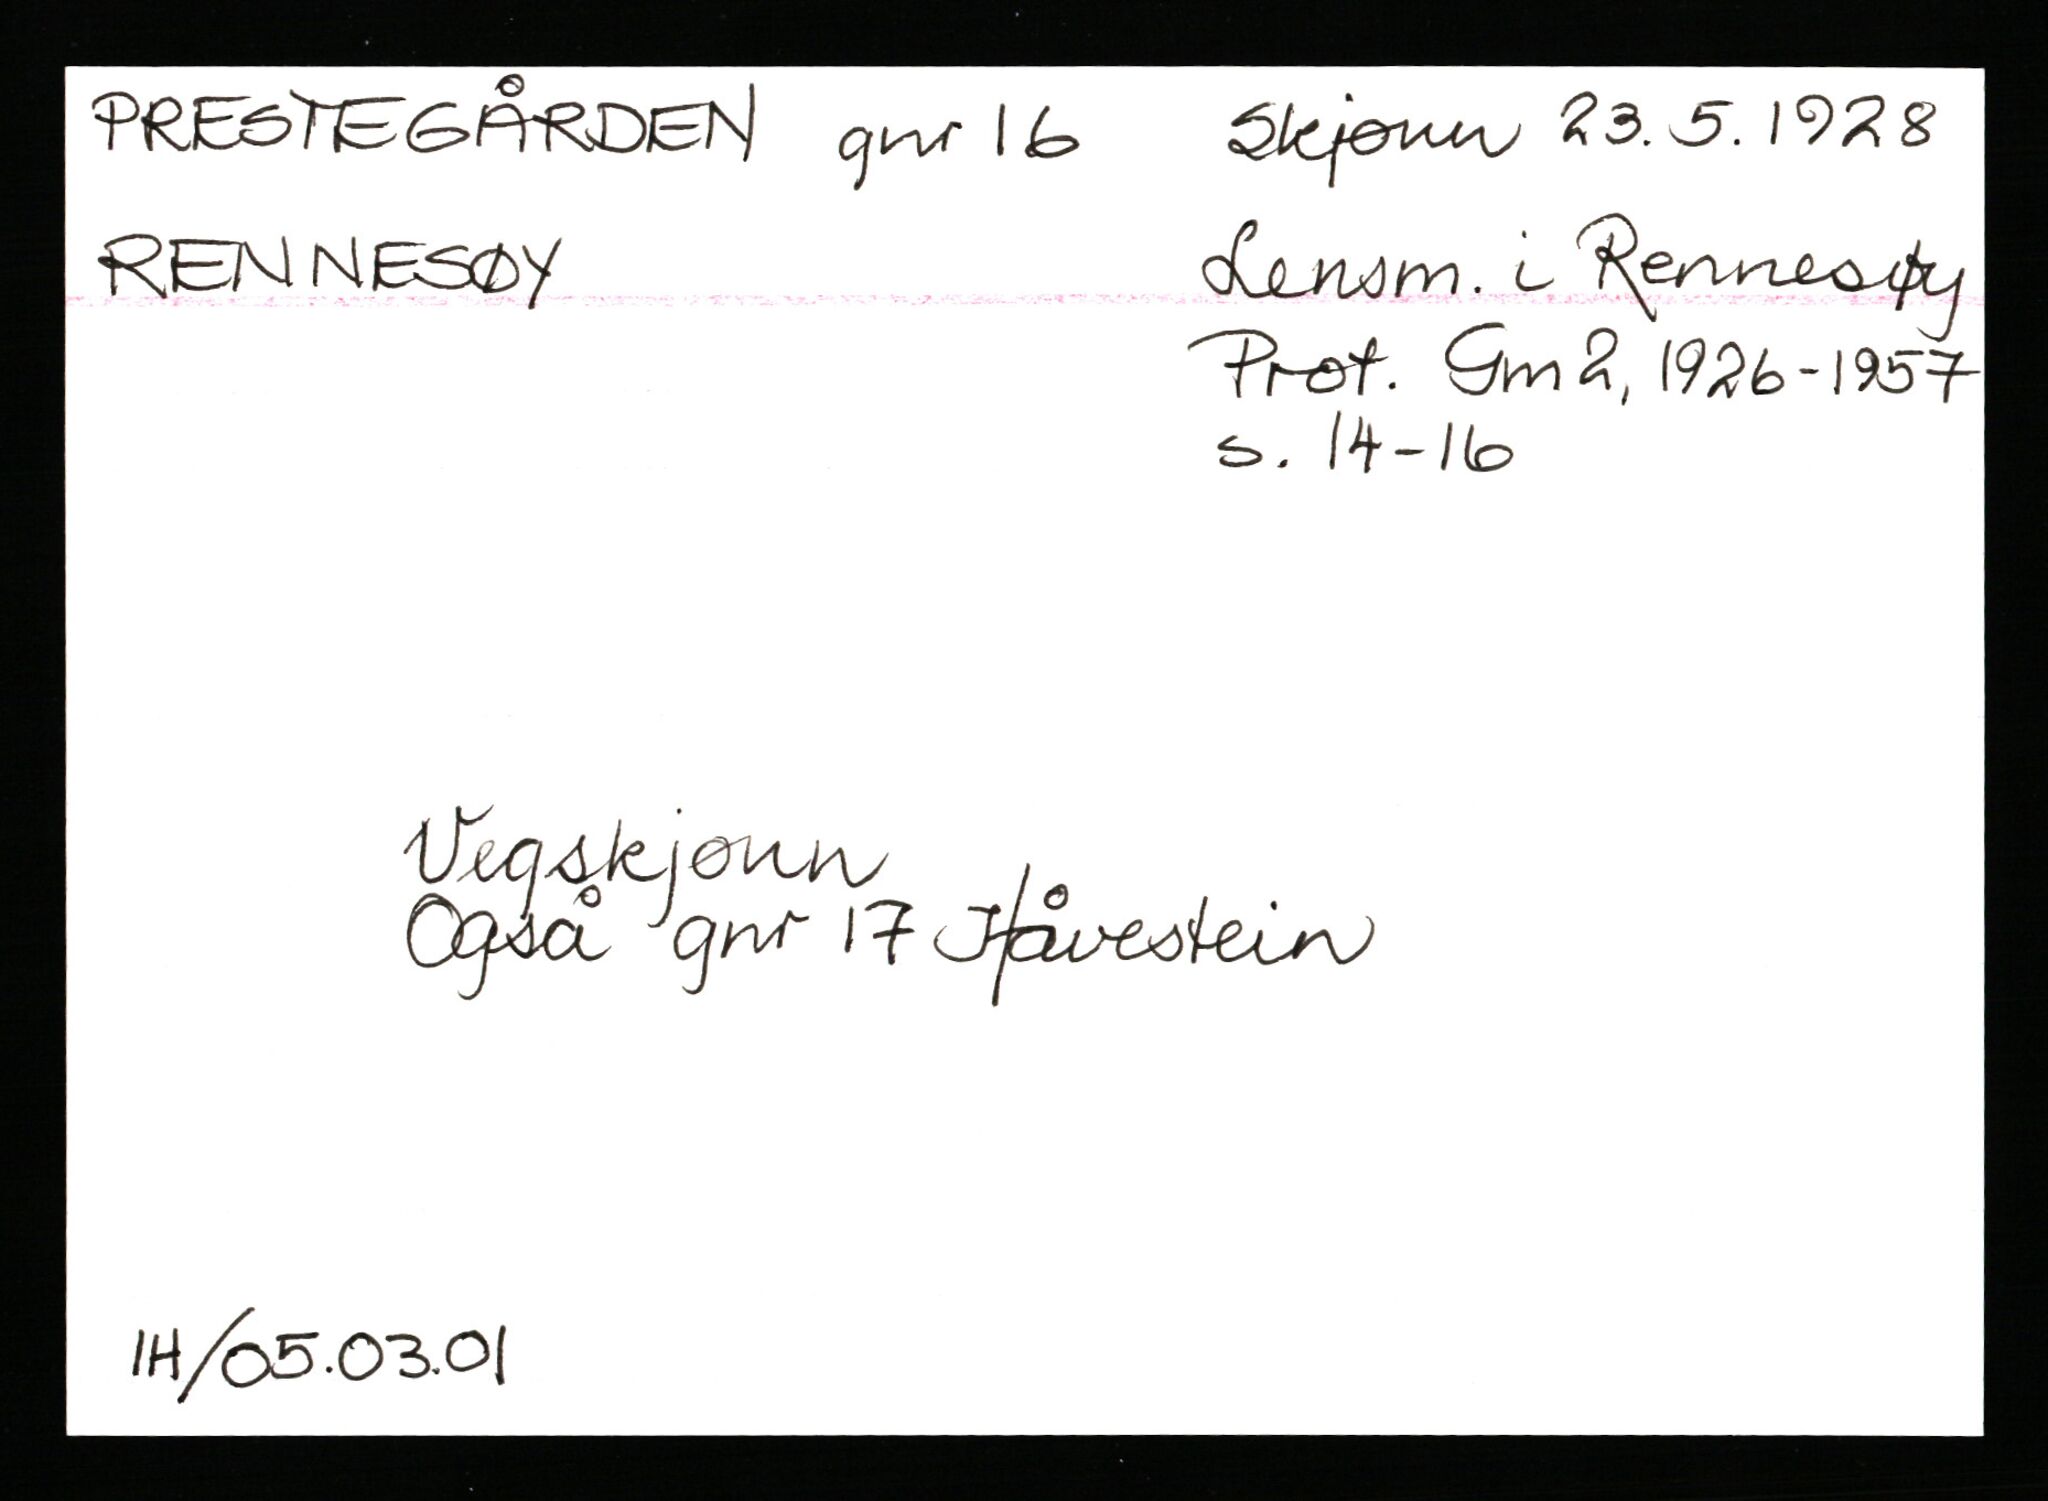 PRESTEGÅRDEN gnr 16 Skjønn 23.5.1928
RENNESØY Lensm. i Rennesøy
Prot. Gm 2, 1926-1957
s. 14-16
Vegskjønn
Også gnr 17 Håvestein
IH/05.03.01